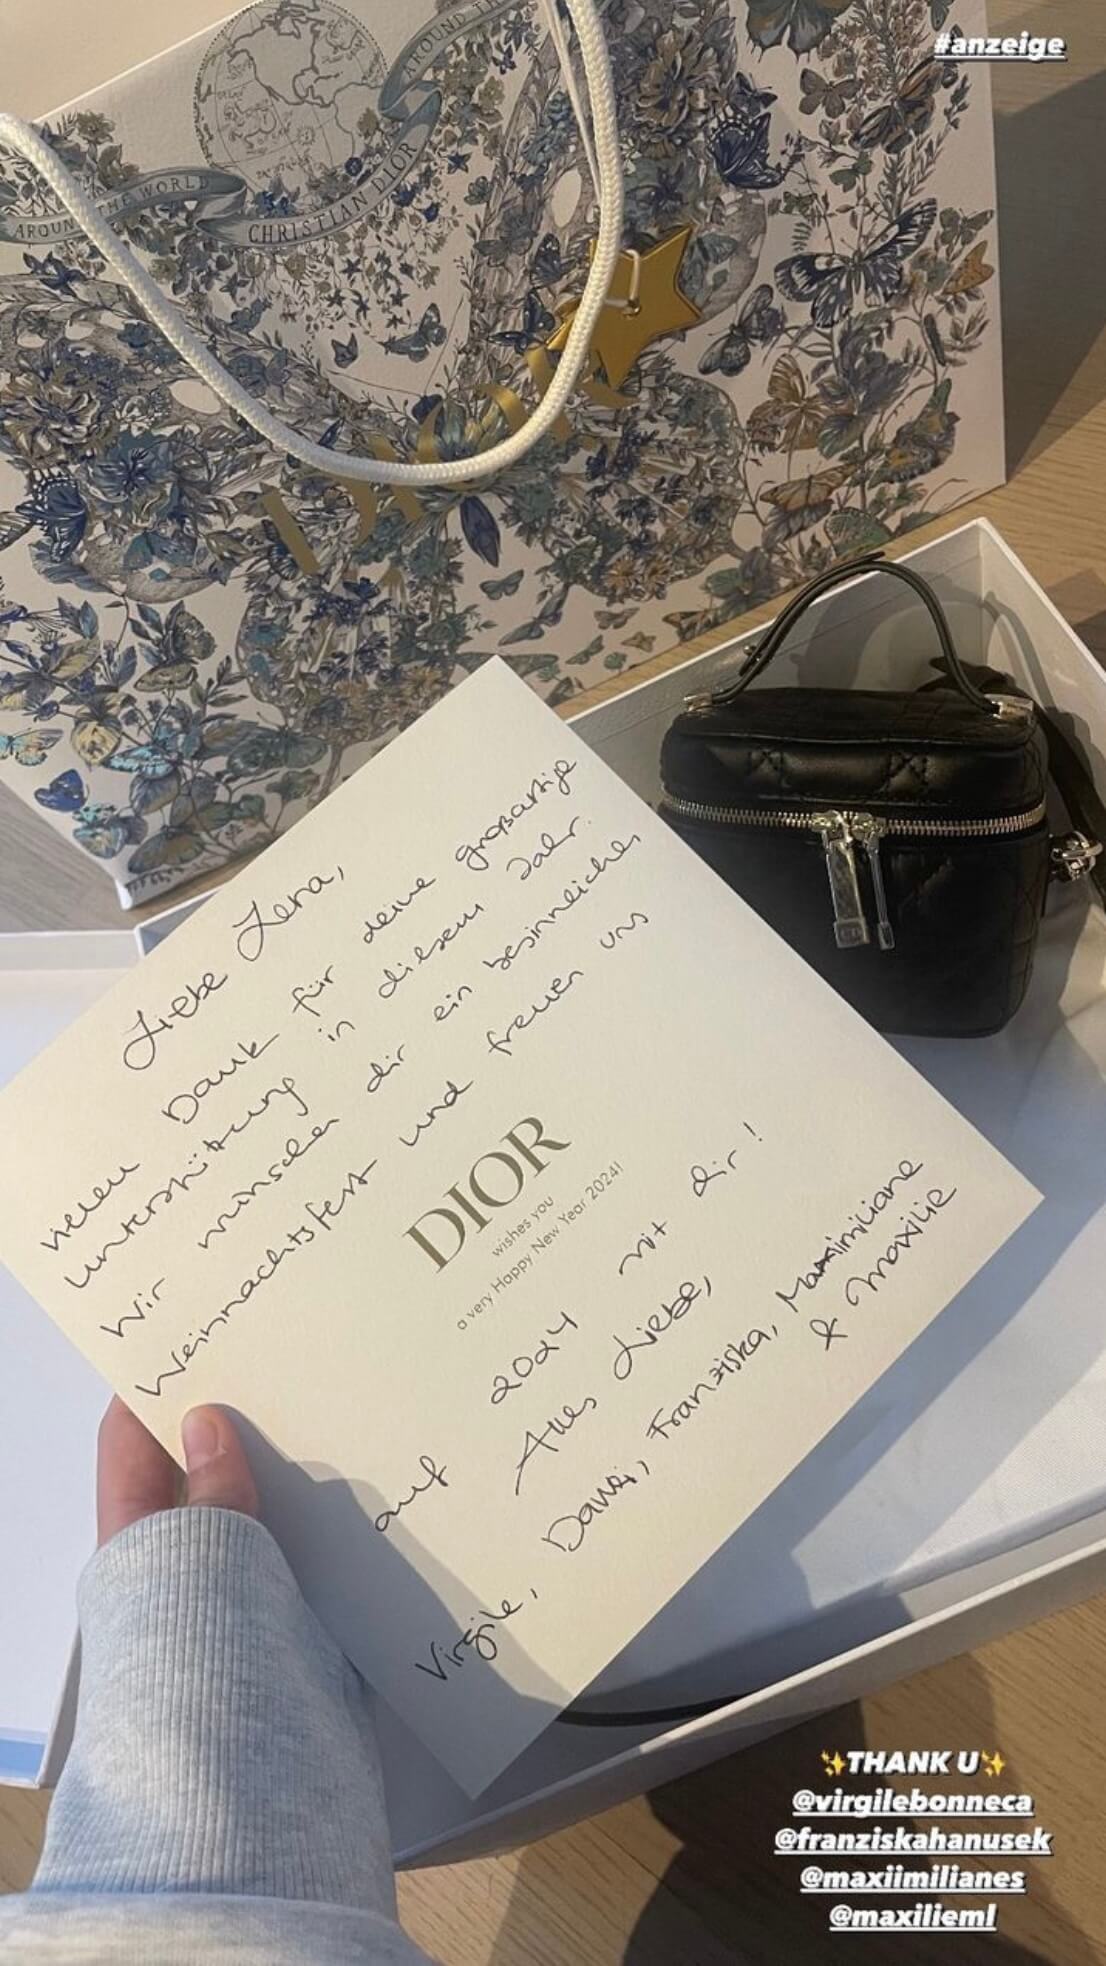 #anzeige
AROUND THE WORLD
CHRISTIAN DIOR
AROUND TH
DIOR
CD
Liebe Lena,
vielen Dank für deine großartige
Unterstützung in diesem Jahr.
Wir wünschen dir ein besinnliches
Weihnachtsfest und freuen uns
DIOR
wishes you
a very Happy New Year 2024!
auf 2024 mit dir!
Alles Liebe,
Virgile, Franziska, Maximiliane
& Maxilie
✨THANK U✨
@virgilebonneca
@franziskahanusek
@maxiimilianes
@maxilieml